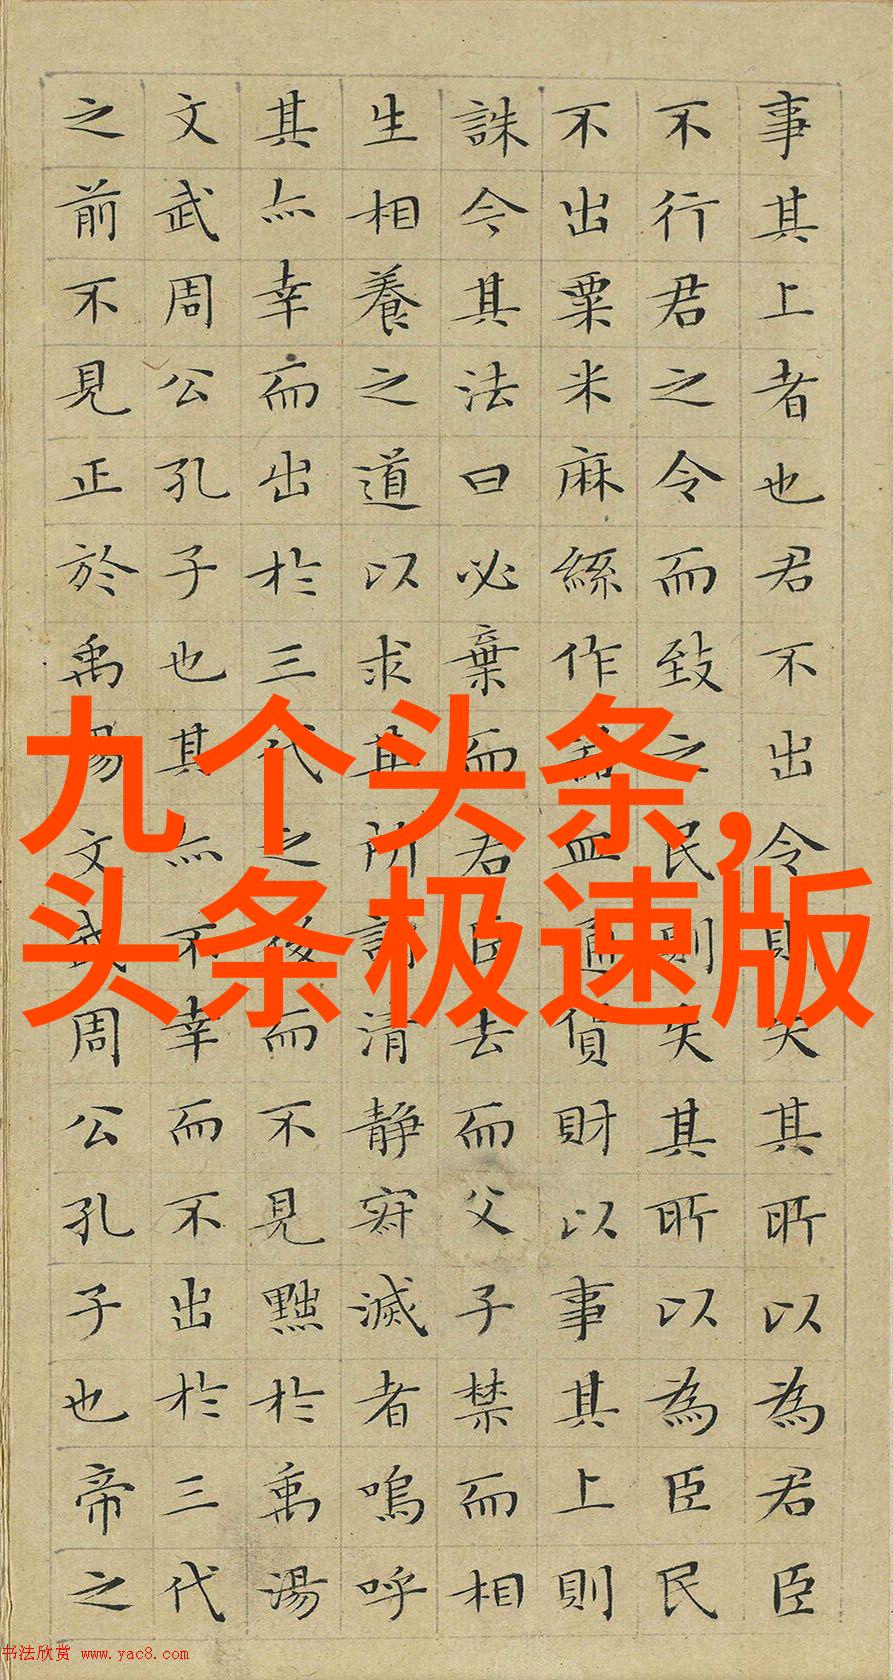 事其上者也君不出令則失其所以為君臣
不行君之令而致之民則失其所以為臣民
不出粟米麻絲作器皿通貨財以事其上則
誅今其法曰必棄而君臣去而父子禁而相
生相養之道以求其所謂清静寂滅者嗚呼
其亦幸而出於三代之後而不見黜於禹湯
文武周公孔子也其亦不幸而不出於三代
之前不見正於禹湯文武周公孔子也帝之
九个头条,
头条极速版
书法欣赏 www.yac8.com